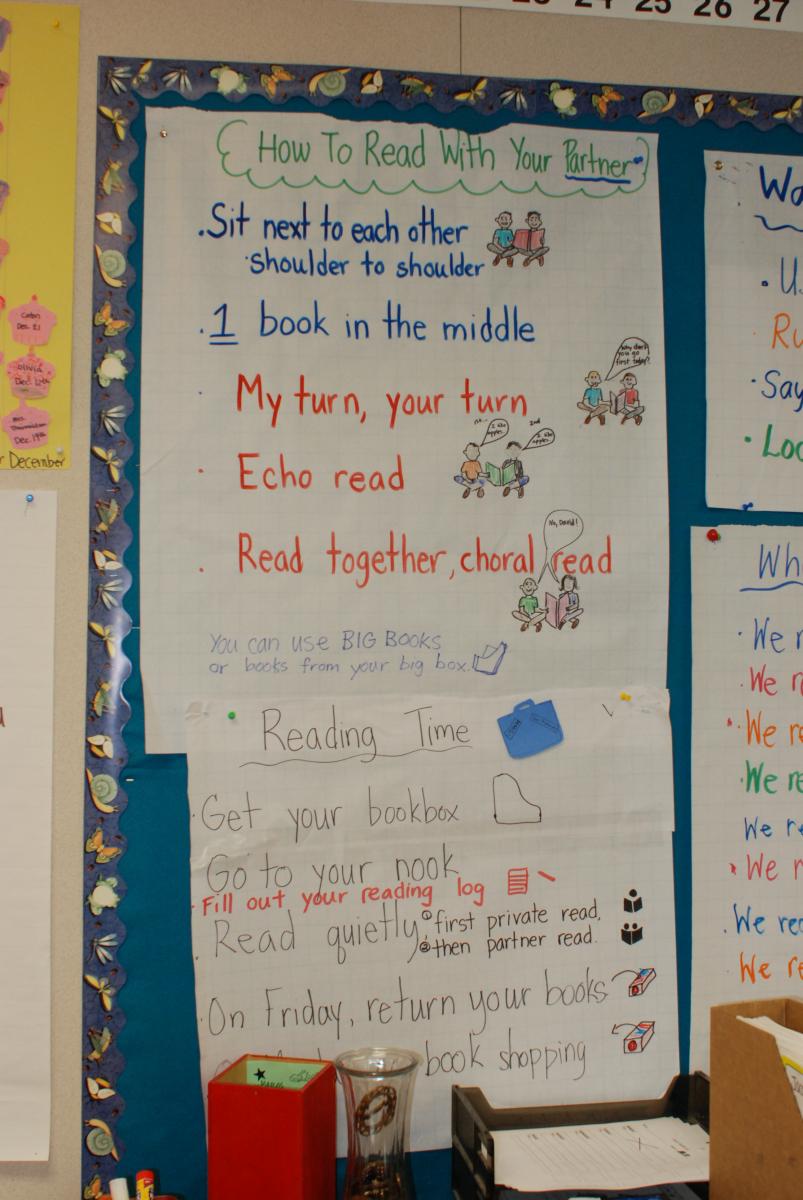 24 25 26 27
How To Read With Your Partner
.Sit next to each other
·shoulder to shoulder
.1 book in the middle
Why don't
you go
first today?
· My turn, your turn
1st
2nd
I like
apples.
I like
apples.
· Echo read
No, David!
. Read together, choral read
You can use BIG BOOKS
or books from your big box.
Reading Time
·Get your bookbox
Go to your nook
·Fill out your reading log
.Read quietly: ① first private read,
② then partner read.
·On Friday, return your books
book shopping
Dec. 21
Olivia
Dec. 12th
Dec. 19th
December
·Say
We
We
We
We
We
We
We
We